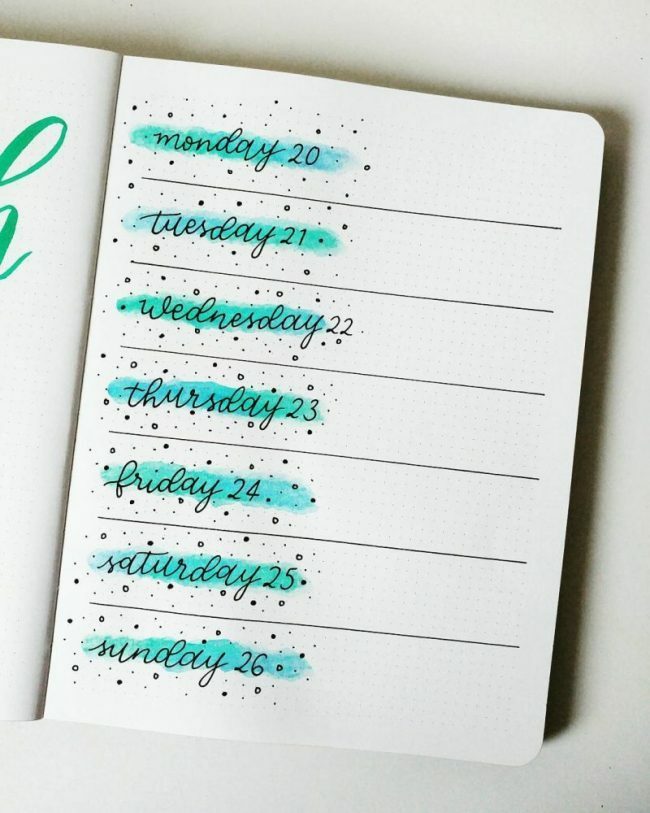 h
monday 20
tuesday 21
wednesday 22
thursday 23
friday 24
saturday 25
sunday 26